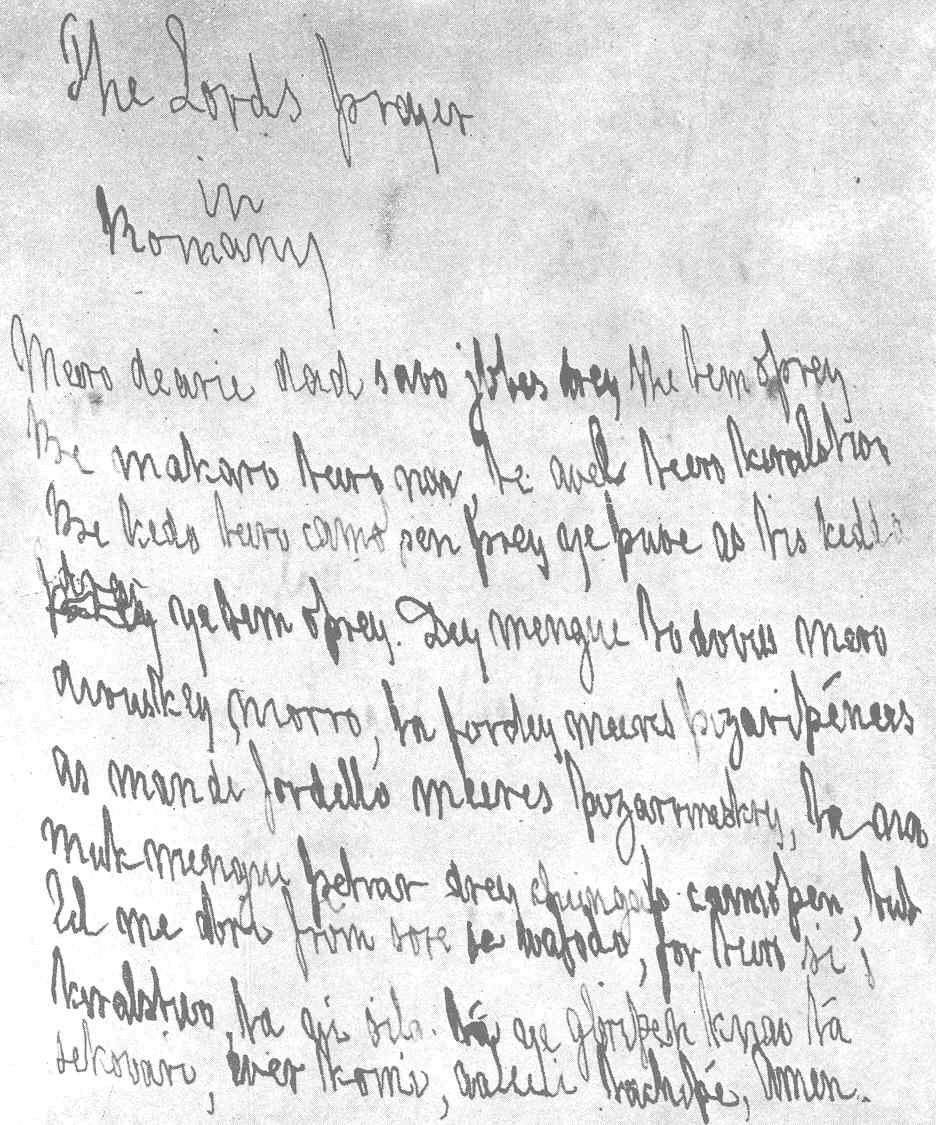 The Lords prayer
in
Romany
Meero dearie dad savo jibes drey the tem oprey
Be makaro teero nav, te avel teero kralstvo
Be kedo teero camo pen prey ye puve as tis keddo
drey ye tem oprey. Dey mengue to dovvus mero
divvuskey morro, ta fordey meeres pizaripéness
as mandi fordello meeres pizarrmeskry, ta
muk mengue petrav drey chungalo camopen, but
led me abri from sore se wafodo, for teero si
kralstvo, ta ye sila. tá ye gloripen knao tá
sekovar, ever komi, tachopé, Amen.